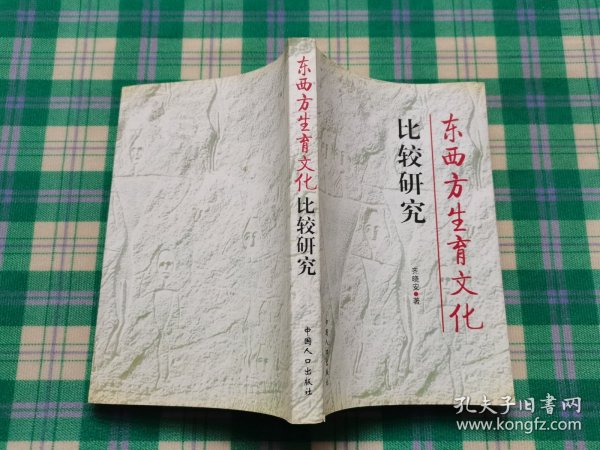 东西方生育文化
比较研究
齐晓安●著
中国人口出版社
东西方生育文化比较研究
中国人口出版社
孔夫子旧书网
www.kongfz.com